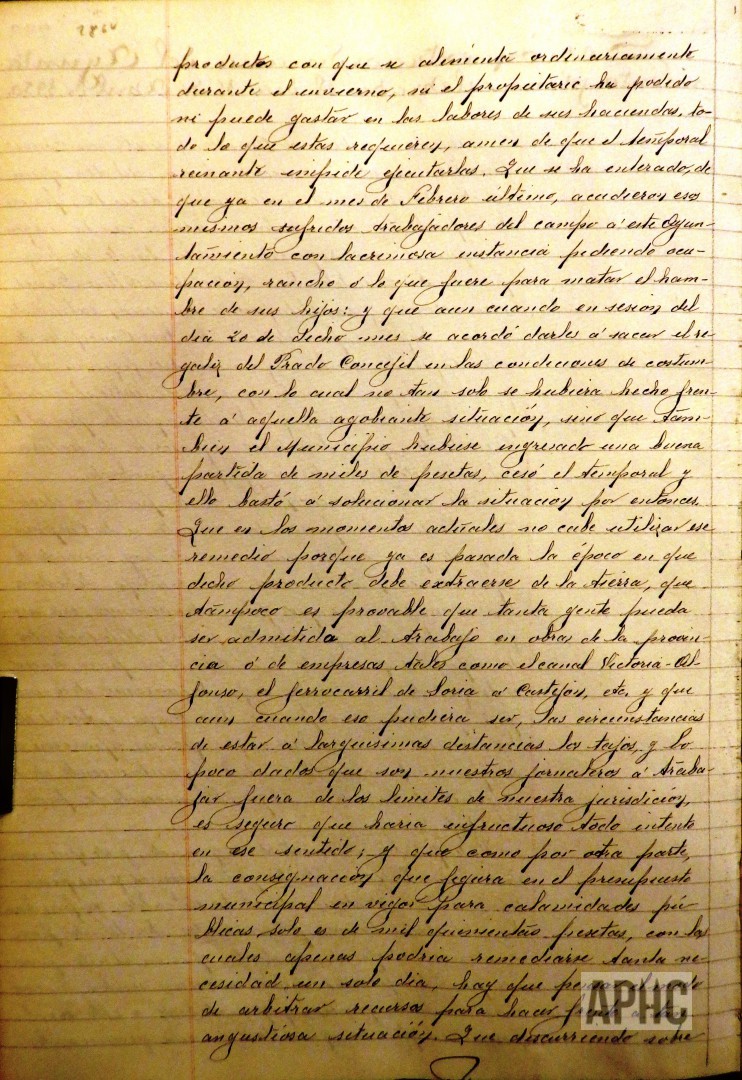 productos con que se alimenta ordinariamente
durante el invierno, ni el propietario ha podido
ni puede gastar en las labores de sus haciendas, to-
do lo que estas requieren, amen de que el temporal
reinante impide ejecutarlas. Que se ha enterado, de
que ya en el mes de Febrero último, acudieron esos
mismos sufridos trabajadores del campo á este Ayun-
tamiento con lacrimosa instancia pidiendo ocu-
pacion, rancho ó lo que fuere para matar el ham-
bre de sus hijos: y que aun cuando en sesion del
dia 20 de dicho mes se acordó darles á sacar el re-
galiz del Prado Concejil en las condiciones de costum-
bre, con lo cual no tan solo se hubiera hecho fren-
te á aquella agobiante situación, sino que tam-
bien el Municipio hubiese ingresado una buena
partida de miles de pesetas, cesó el temporal y
ello bastó á solucionar la situacion por entonces.
Que en los momentos actuales no cabe utilizar ese
remedio porque ya es pasada la época en que
dicho producto debe extraerse de la tierra, que
tampoco es provable que tanta gente pueda
ser admitida al trabajo en obras de la provin-
cia ó de empresas tales como el canal Victoria-Al-
fonso, el ferrocarril de Soria á Castejon, etc, y que
aun cuando eso pudiera ser, las circunstancias
de estar á larguisimas distancias los tajos, y lo
poco dados que son nuestros jornaleros á traba-
jar fuera de los limites de nuestra jurisdicion,
es seguro que haria infructuoso todo intento
en ese sentido; y que como por otra parte,
la consignación que figura en el presupuesto
municipal en vigor para calamidades pú-
blicas, solo es de mil quinientas pesetas, con las
cuales apenas podria remediarse tanta ne-
cesidad un solo dia, hay que
de arbitrar recursos para hacer
angustiosa situación. Que discurriendo sobre
APHC